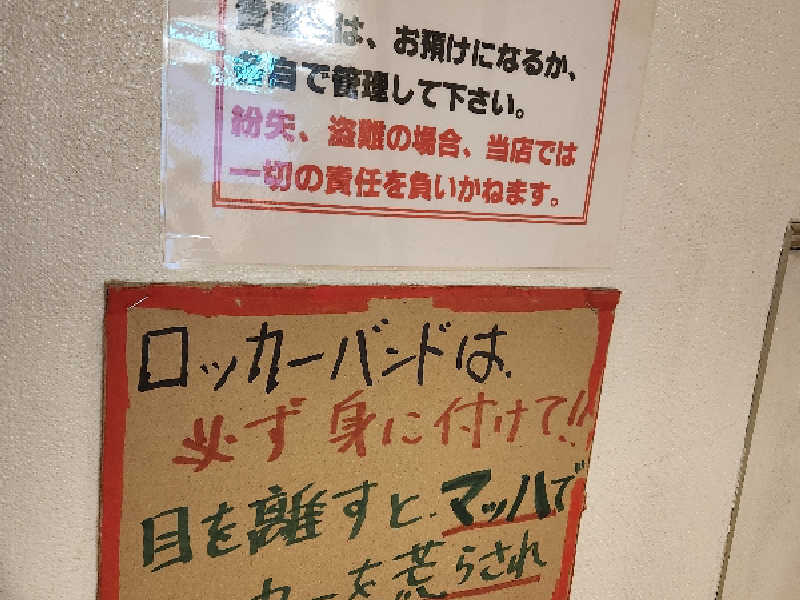 貴重品は、お預けになるか、
各自で管理して下さい。
紛失、盗難の場合、当店では
一切の責任を負いかねます。
ロッカーバンドは、
必ず身に付けて!!
目を離すと、マッハで
カーを荒らされ